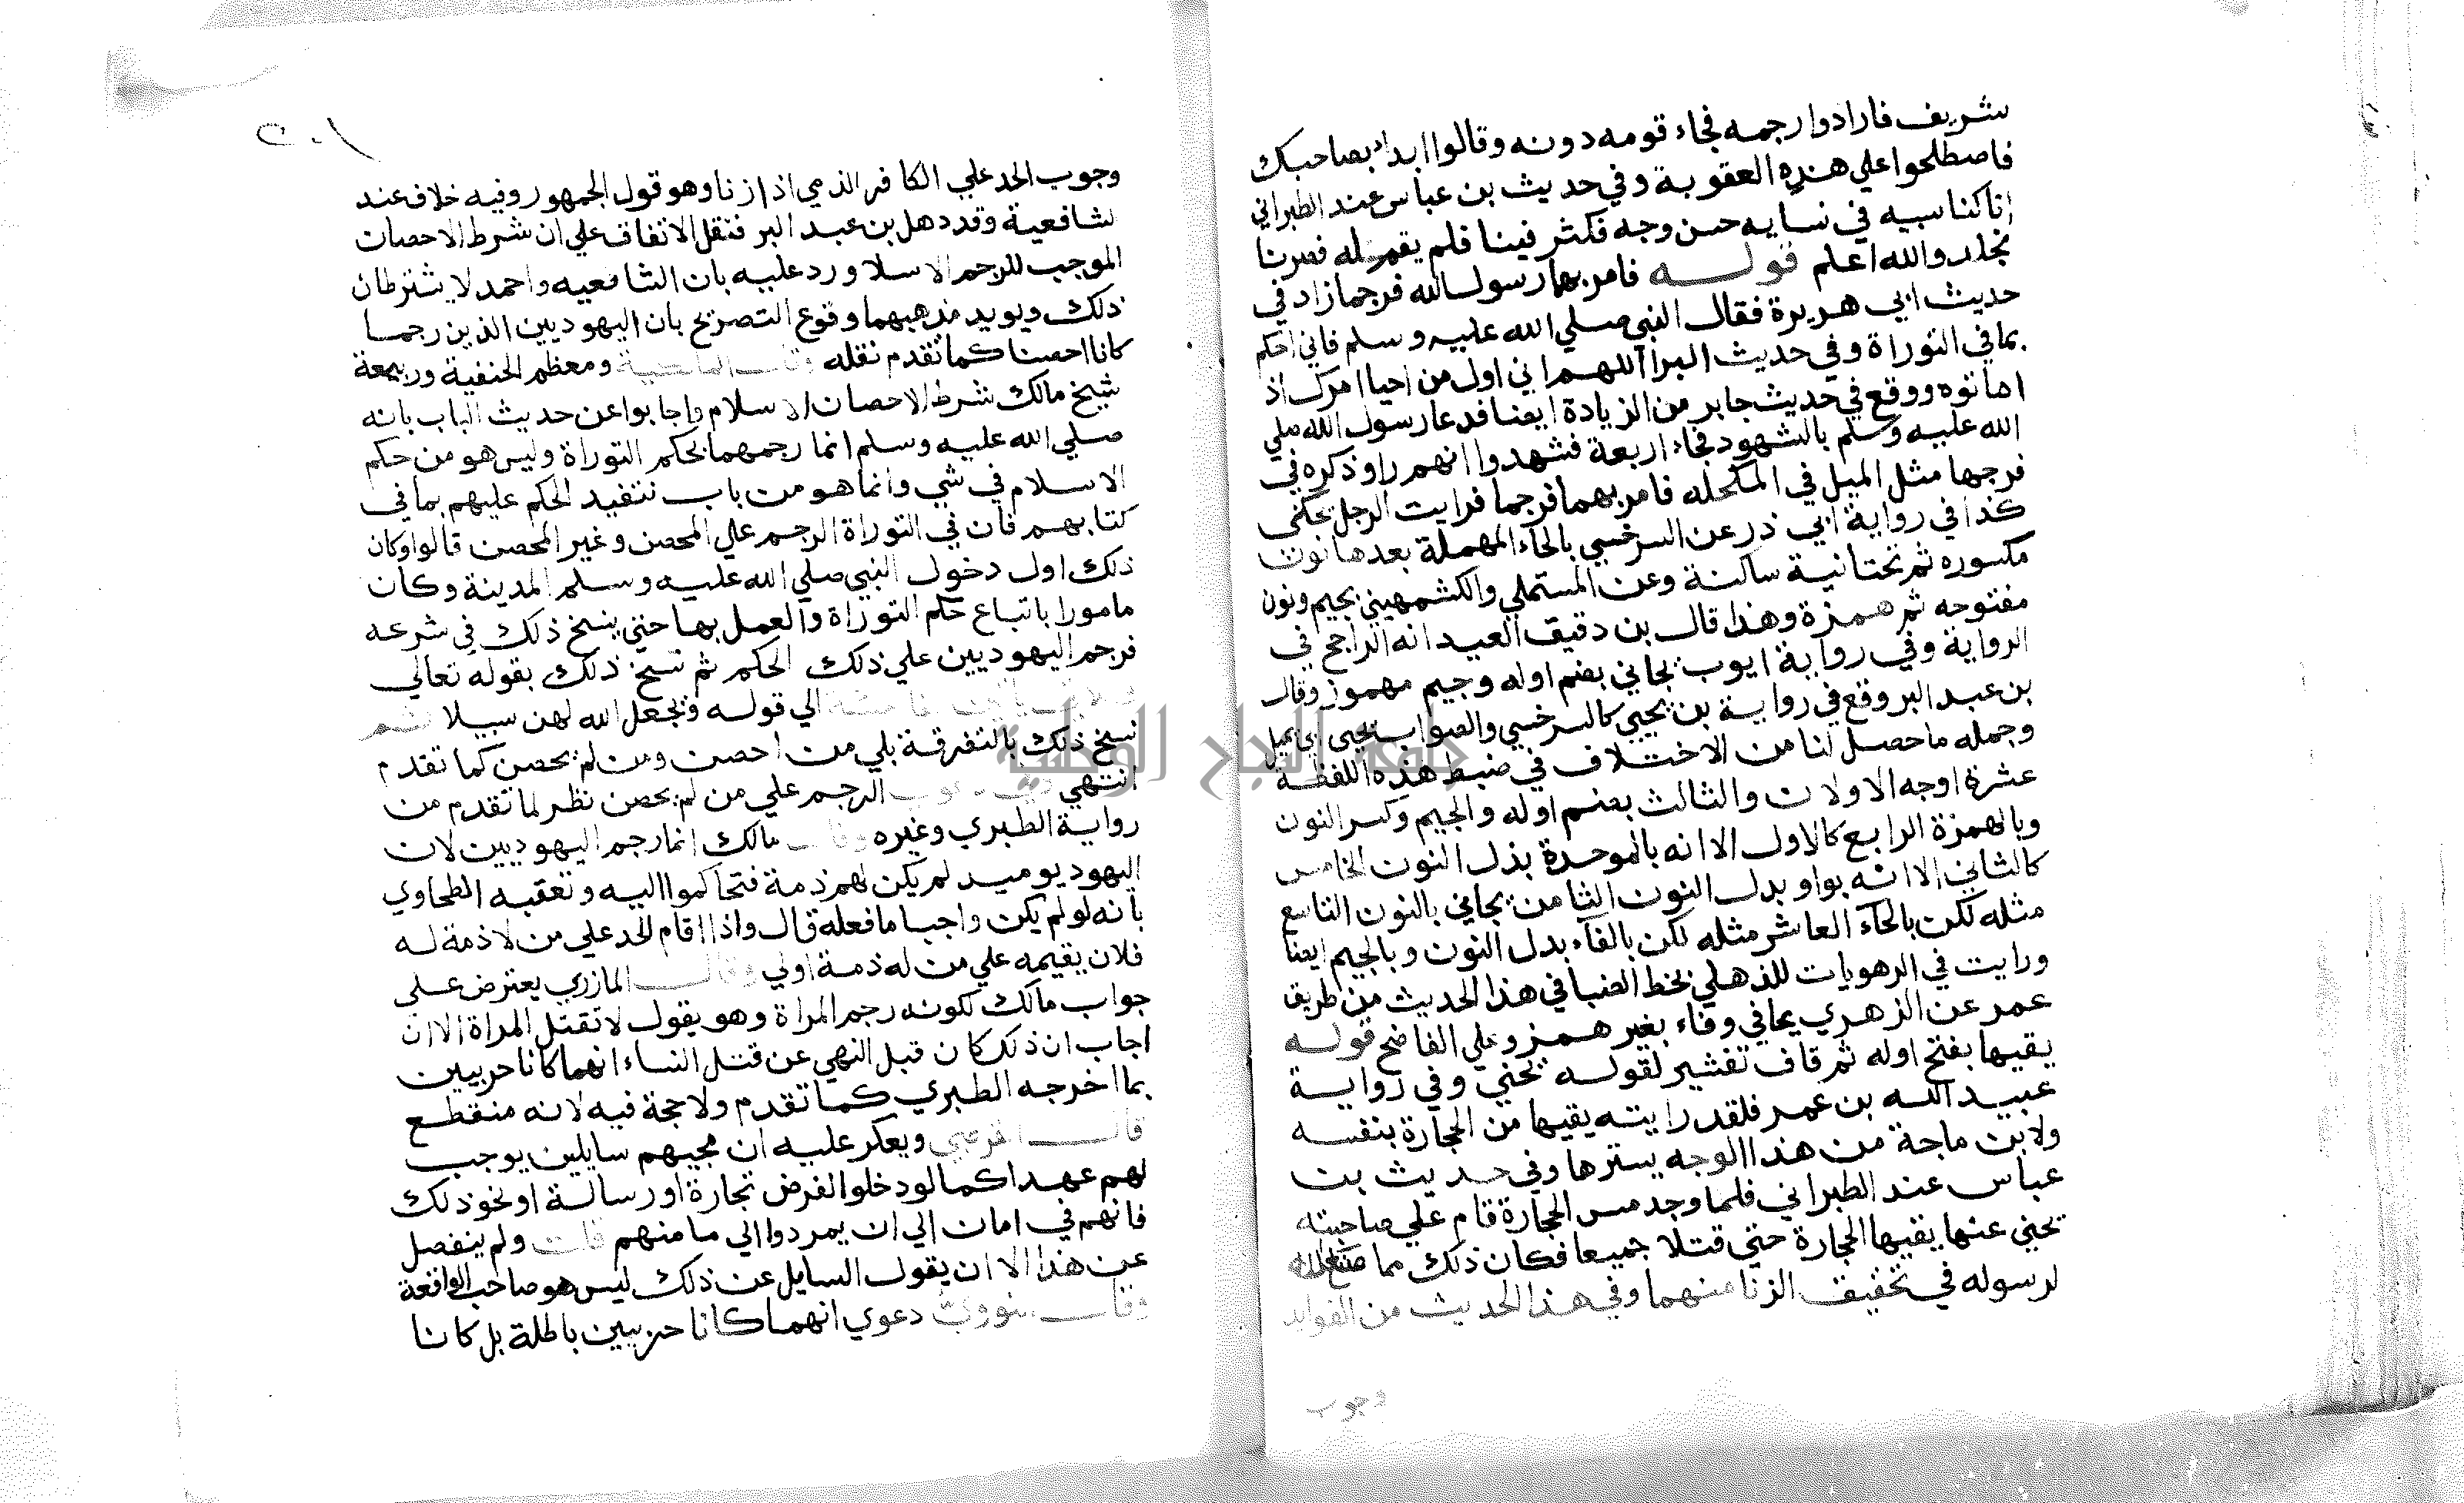 شريف فارادوا رجمه فجاء قومه دونه وقالوا ابدا بصاحبك
فاصطلحوا علي هذه العقوبة وفي حديث بن عباس عند الطبراني
انا كنا شبيه في نسايه حسن وجه فكثر فينا فلم يقم له فصرنا
نجلد والله اعلم قوله فامر بهما رسول الله فرجما زاد في
حديث ابي هريرة فقال النبي صلي الله عليه وسلم فاني احكم
بما في التوراة وفي حديث البرا اللهم اني اول من احيا امرك اذ
اماتوه ووقع في حديث جابر من الزيادة ايضا فدعا رسول الله صلي
الله عليه وسلم بالشهود فجاء اربعة فشهدوا انهم راو ذكره في
فرجها مثل الميل في المكحله فامر بهما فرجما فرايت الرجل يحني
كذا في رواية ابي ذر عن السرخسي بالحاء المهملة بعدها نون
مكسوره ثم تحتانية ساكنة وعن المستملي والكشمهيني بجيم ونون
مفتوحه ثم همزة وهذا قال بن دقيق العيد انه الراجح في
الرواية وفي رواية ايوب يجاني بضم اوله وجيم مهموز وقال
بن عبد البر وقع في رواية بن يحيي كالسرخسي والصواب يحني اي يميل
وجمله ما حصل لنا من الاختلاف في ضبط هذه اللفظة
عشرة اوجه الاولات والثالث بضم اوله والجيم وكسر النون
وبالهمزة الرابع كالاول الا انه بالموحدة بدل النون الخامس
كالثاني الا انه بواو بدل النون الثامن يجاني بالنون التاسع
مثله لكن بالحاء العاشر مثله لكن بالفاء بدل النون وبالجيم ايضا
ورايت في الزهريات للذهلي بخط الضيا في هذا الحديث من طريق
عمر عن الزهري يجافي وفاء بغير همز وعلي الفا صح قوله
يقيها بفتح اوله ثم قاف تفسير لقوله يحني وفي رواية
عبيد الله بن عمر فلقد رايته يقيها من الحجارة بنفسه
ولابن ماجة من هذا الوجه يسترها وفي حديث بن
عباس عند الطبراني فلما وجد مس الحجارة قام علي صاحبته
يحني عنها يقيها الحجارة حتي قتلا جميعا فكان ذلك مما صنع الله
لرسوله في تحقيق الزنا منهما وفي هذا الحديث من الفوايد
وجوب
وجوب الحد علي الكافر الذمي اذا زنا وهو قول الجمهور وفيه خلاف عند
لشافعية وقد دهل بن عبد البر فنقل الاتفاق علي ان شرط الاحصان
الموجب للرجم الاسلا ورد عليه بان الشافعيه واحمد لا يشترطان
ذلك ويويد مذهبهما وقوع التصريح بان اليهوديين الذين رجما
كانا احصنا كما تقدم نقله وقالت المالكية ومعظم الحنفية وربيعة
شيخ مالك شرط الاحصان الاسلام واجابوا عن حديث الباب بانه
صلي الله عليه وسلم انما رجمهما بحكم التوراة وليس هو من حكم
الاسلام في شي وانما هو من باب تنفيد الحكم عليهم بما في
كتابهم فان في التوراة الرجم علي المحصن وغير المحصن قالوا وكان
ذلك اول دخول النبي صلي الله عليه وسلم المدينة وكان
مامورا باتباع حكم التوراة والعمل بها حتي ينسخ ذلك في شرعه
فرجم اليهوديين علي ذلك الحكم ثم نسخ ذلك بقوله تعالي
الي قوله ويجعل الله لهن سبيلا ثم
نسخ ذلك بالتفرقة بلي من احصن ومن لم يحصن كما تقدم
انتهي وفي دعوي الرجم علي من لم يحصن نظر لما تقدم من
رواية الطبري وغيره وقال مالك انما رجم اليهوديين لان
اليهود يوميد لم يكن لهم ذمة فتحاكموا اليه وتعقبه الطحاوي
بانه لو لم يكن واجبا ما فعله قال واذا اقام الحد علي من لا ذمة له
فلان يقيمه علي من له ذمة اولي وقال المازري يعترض علي
جواب مالك لكونه رجم المراة وهو يقول لا تقتل المراة الا ان
اجاب ان ذلك كان قبل النهي عن قتل النساء انهما كانا حربيين
بما اخرجه الطبري كما تقدم ولا حجة فيه لانه منقطع
قال القرطبي ويعكر عليه ان مجيهم سايلين يوجب
لهم عهدا كما لو دخلوا لغرض تجارة او رسالة او نحو ذلك
فانهم في امان الي ان يمردوا الي مامنهم قلت ولم ينفصل
عن هذا الا ان يقول السايل عن ذلك ليس هو صاحب الواقعة
وقال النووي دعوي انهما كانا حربيين باطلة بل كانا
جامعة النجاح الوطنية